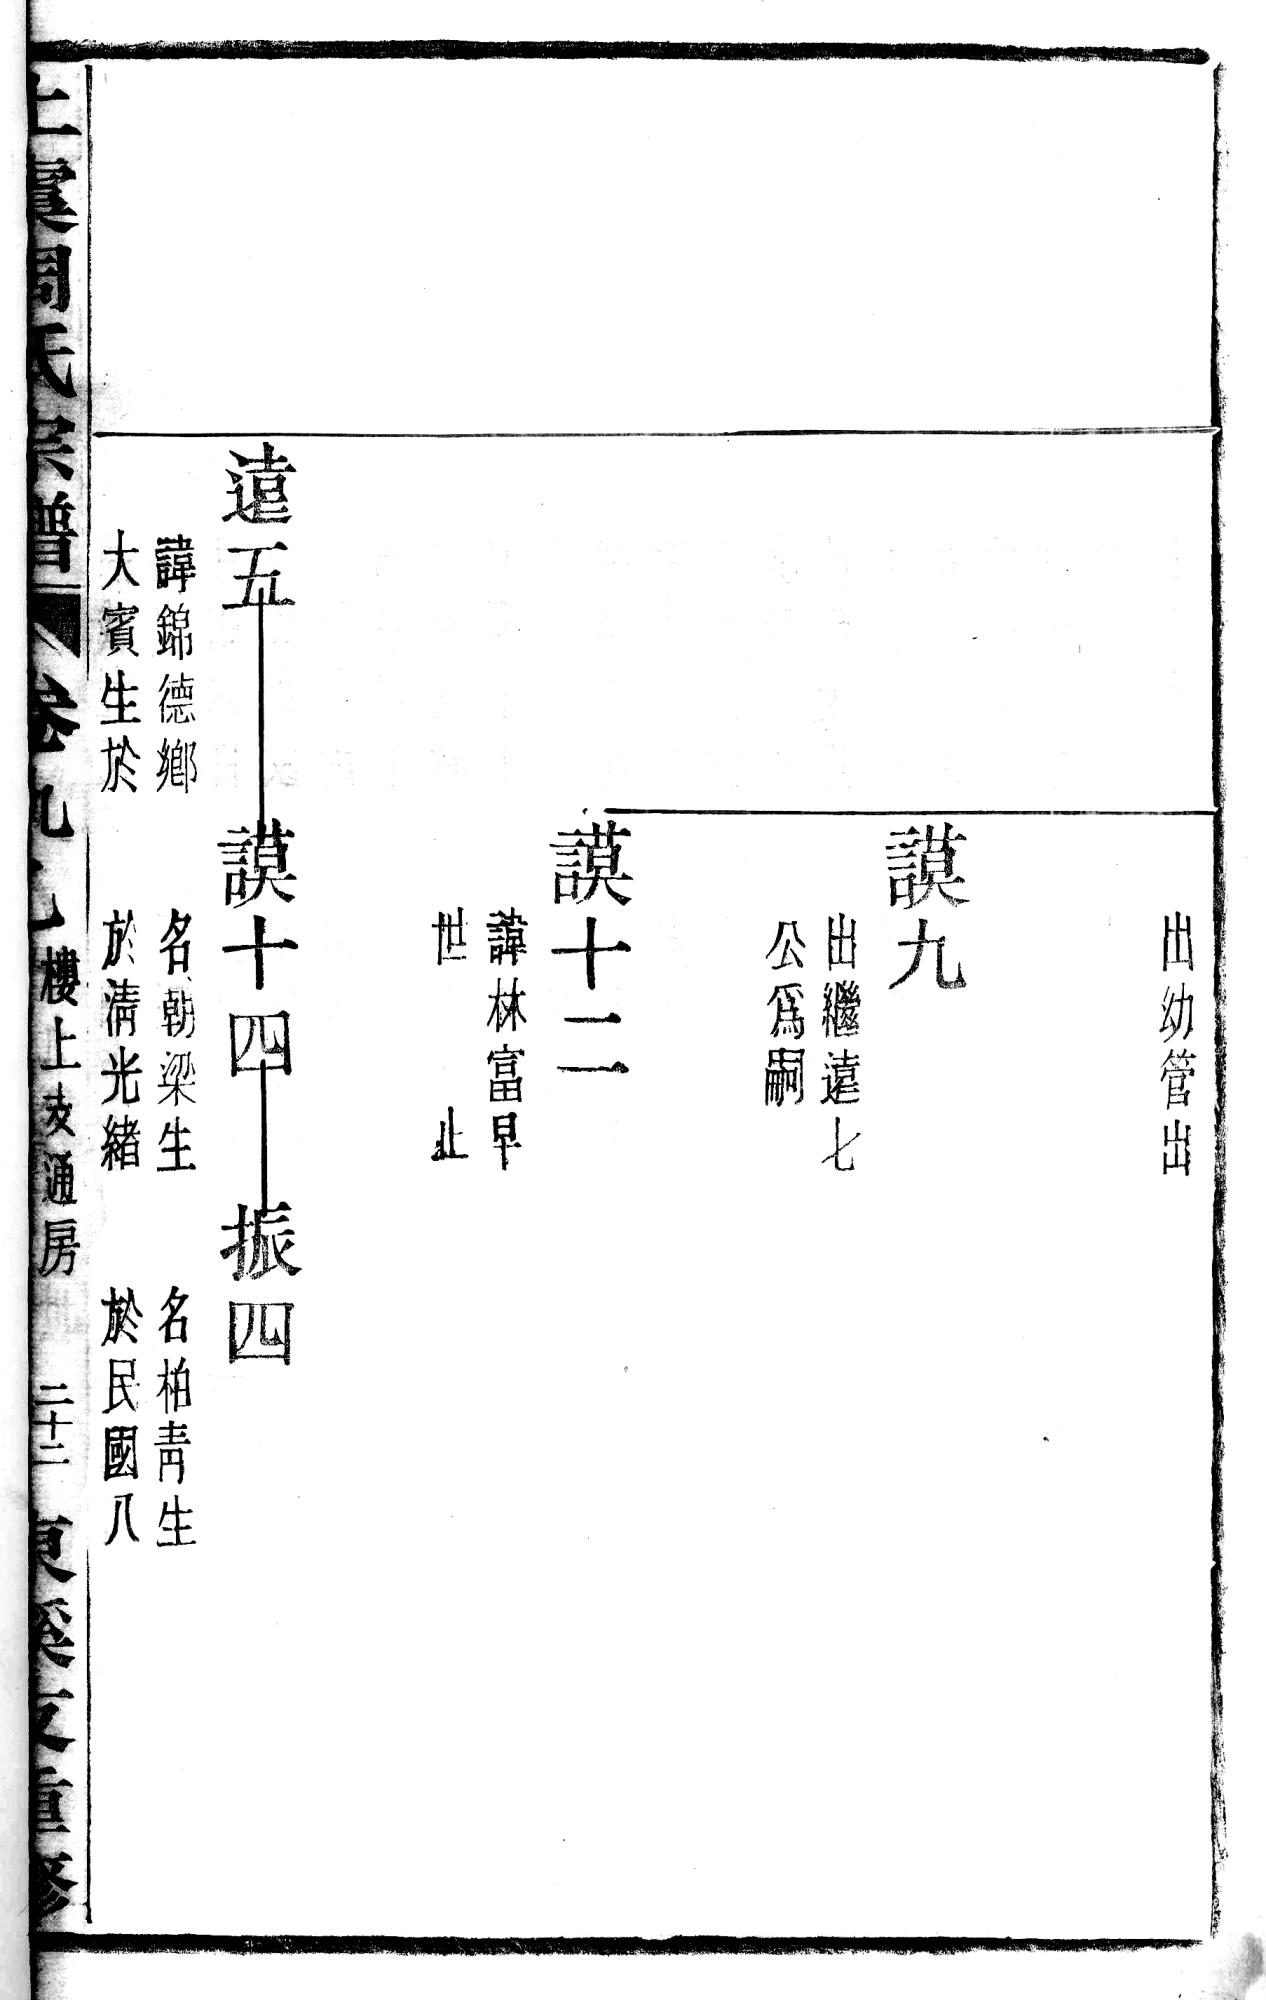 出幼管出
謨九
出繼遠七
公爲嗣
謨十二
諱林富早
世 止
遠五
謨十四
振四
諱錦德鄉
大賓生於
名朝梁生
於淸光緒
名柏靑生
於民國八
上虞周氏宗譜
卷九
樓上支通房
二十二
東溪支重修